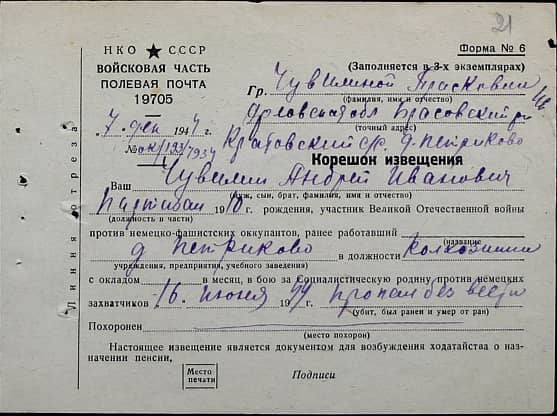 21
НКО ★ СССР
ВОЙСКОВАЯ ЧАСТЬ
ПОЛЕВАЯ ПОЧТА
19705
Форма № 6
(Заполняется в 3-х экземплярах)
Гр. Чувилиной Прасковии
(фамилия, имя и отчество)
Орловская обл Брасовский р-н
(точный адрес)
7 дек 194 г.
Кратовский с/с. д. Петриково
№
Корешок извещения
Ваш Чувилин Андрей Иванович
(муж, сын, брат, фамилия, имя и отчество)
Партизан 19 г. рождения, участник Великой Отечественной войны
(должность в части)
против немецко-фашистских оккупантов, ранее работавший
(название
д Петриково в должности
учреждения, предприятия, учебного заведения)
с окладом в месяц, в бою за Социалистическую родину против немецких
захватчиков 16 июня 194 г. пропал без вести
(убит, был ранен и умер от ран)
Похоронен
(место похорон)
Настоящее извещение является документом для возбуждения ходатайства о на-
значении пенсии.
Место
печати
Подписи
Линия отреза